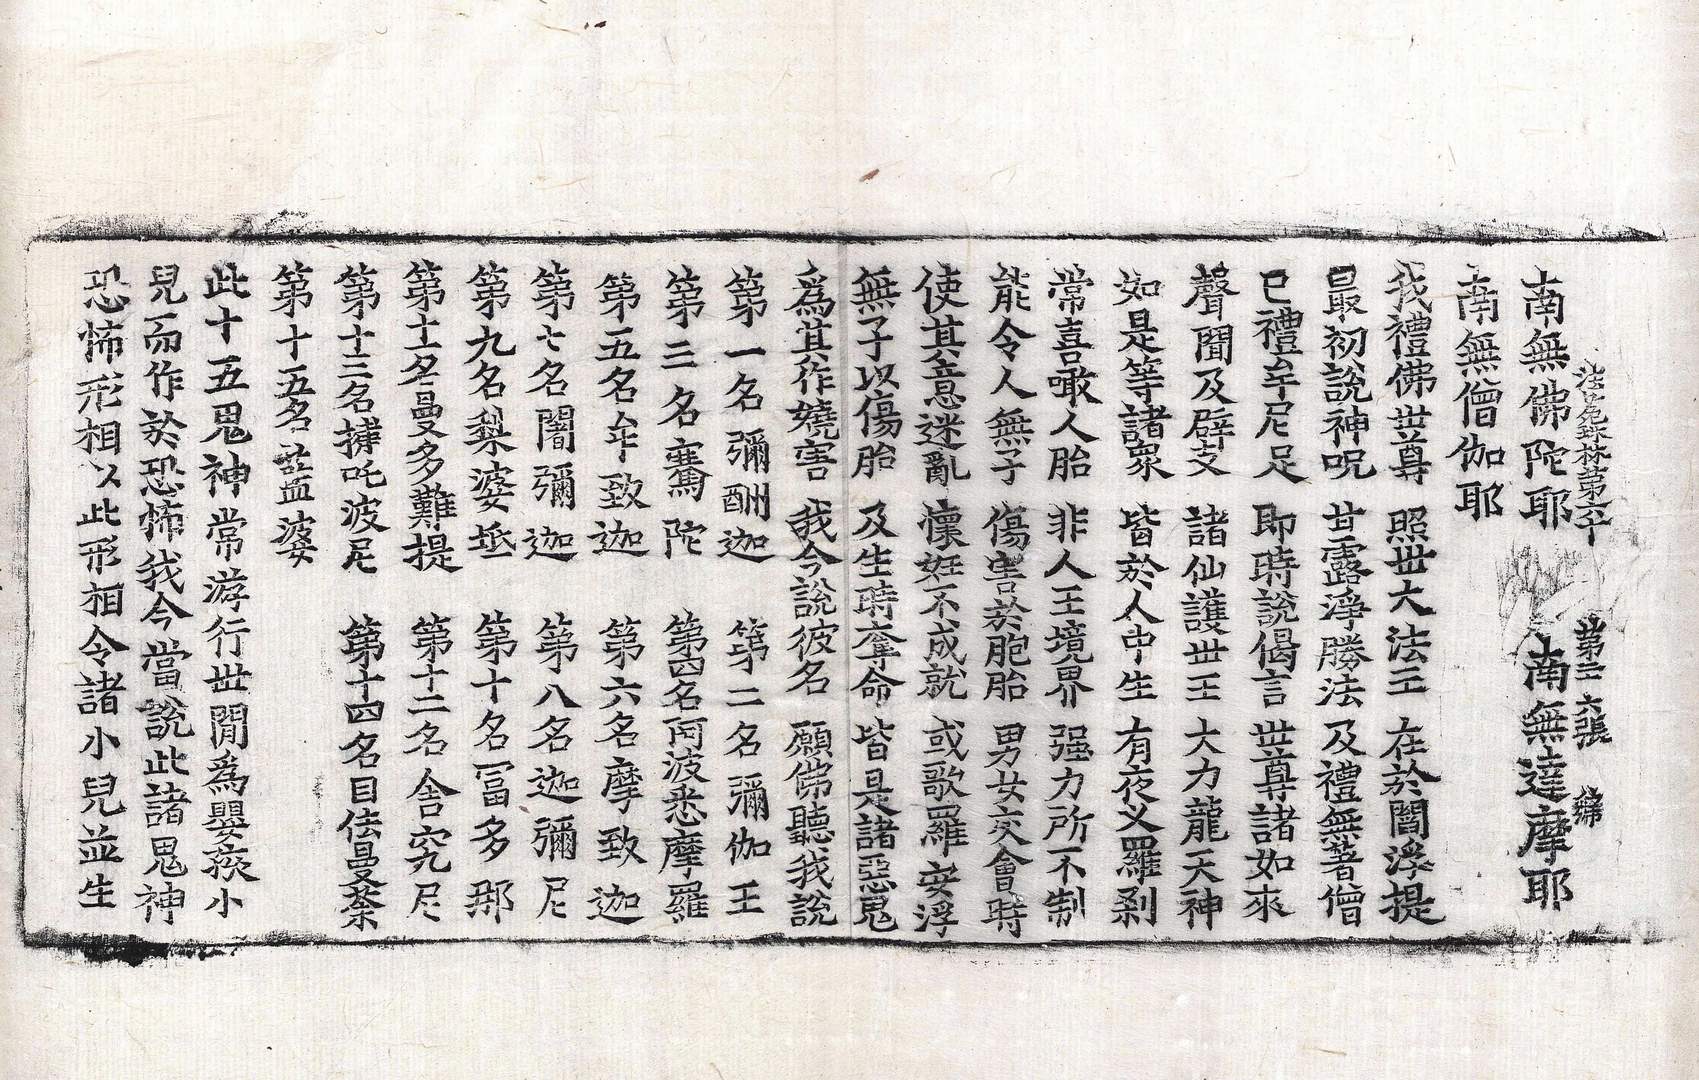 法苑珠林第六十　第二六張　綿
南無佛陀耶　南無達摩耶
南無僧伽耶
我禮佛世尊　照世大法王　在於閻浮提
最初說神呪　甘露淨勝法　及禮無著僧
已禮牟尼足　即時說偈言　世尊諸如來
聲聞及辟支　諸仙護世王　大力龍天神
如是等諸衆　皆於人中生　有夜义羅剎
常喜噉人胎　非人王境界　强力所不制
能令人無子　傷害於胞胎　男女交會時
使其意迷亂　懷姙不成就　或歌羅安浮
無子以傷胎　及生時奪命　皆是諸惡鬼
爲其作嬈害　我今說彼名　願佛聽我說
第一名彌酬迦　第二名彌伽王
第三名騫陀　第四名阿波悉摩羅
第五名牟致迦　第六名摩致迦
第七名闍彌迦　第八名迦彌尼
第九名梨婆坻　第十名冨多那
第十一名曼多難提　第十二名舍究尼
第十三名揵吒波尼　第十四名目佉曼荼
第十五名藍婆
此十五鬼神常游行世閒爲嬰孩小
兒而作於恐怖我今當說此諸鬼神
恐怖形相以此形相令諸小兒並生